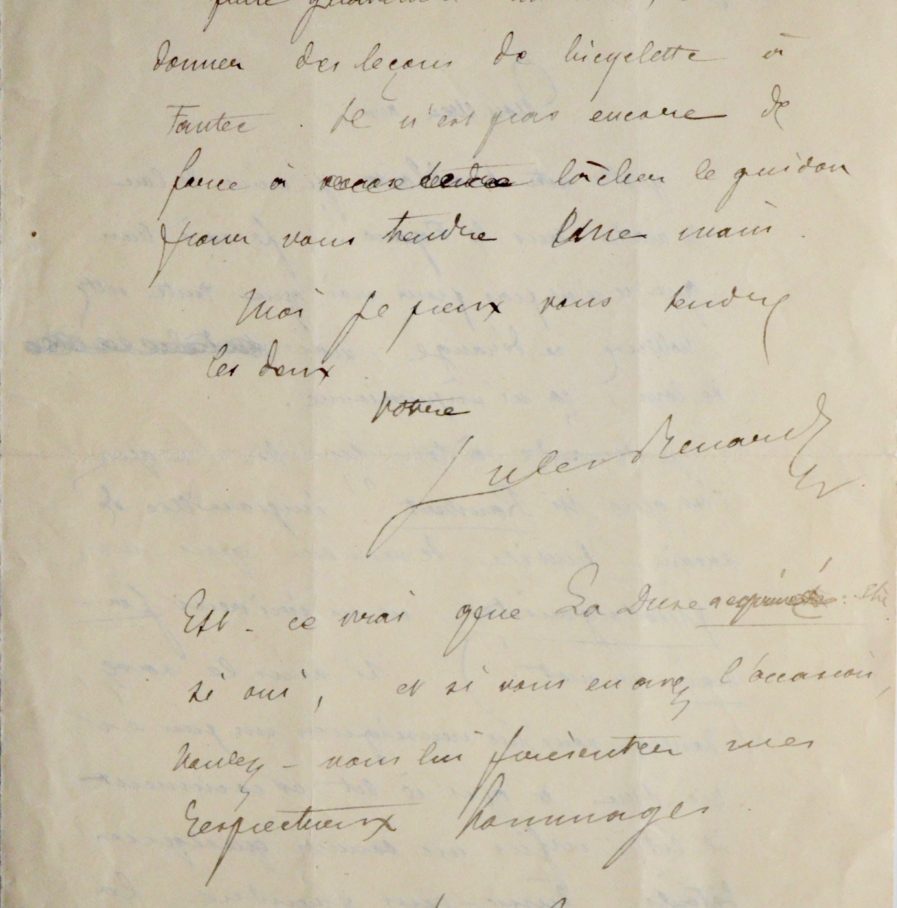 donner des leçons de bicyclette à
Fantec. Il n'est pas encore de
force à lâcher le guidon
pour vous tendre une main.
Moi je peux vous tendre
les deux
Votre
Jules Renard
Est-ce vrai que La Duse
si oui, et si vous en avez l'occasion,
voulez-vous lui présenter mes
respectueux hommages